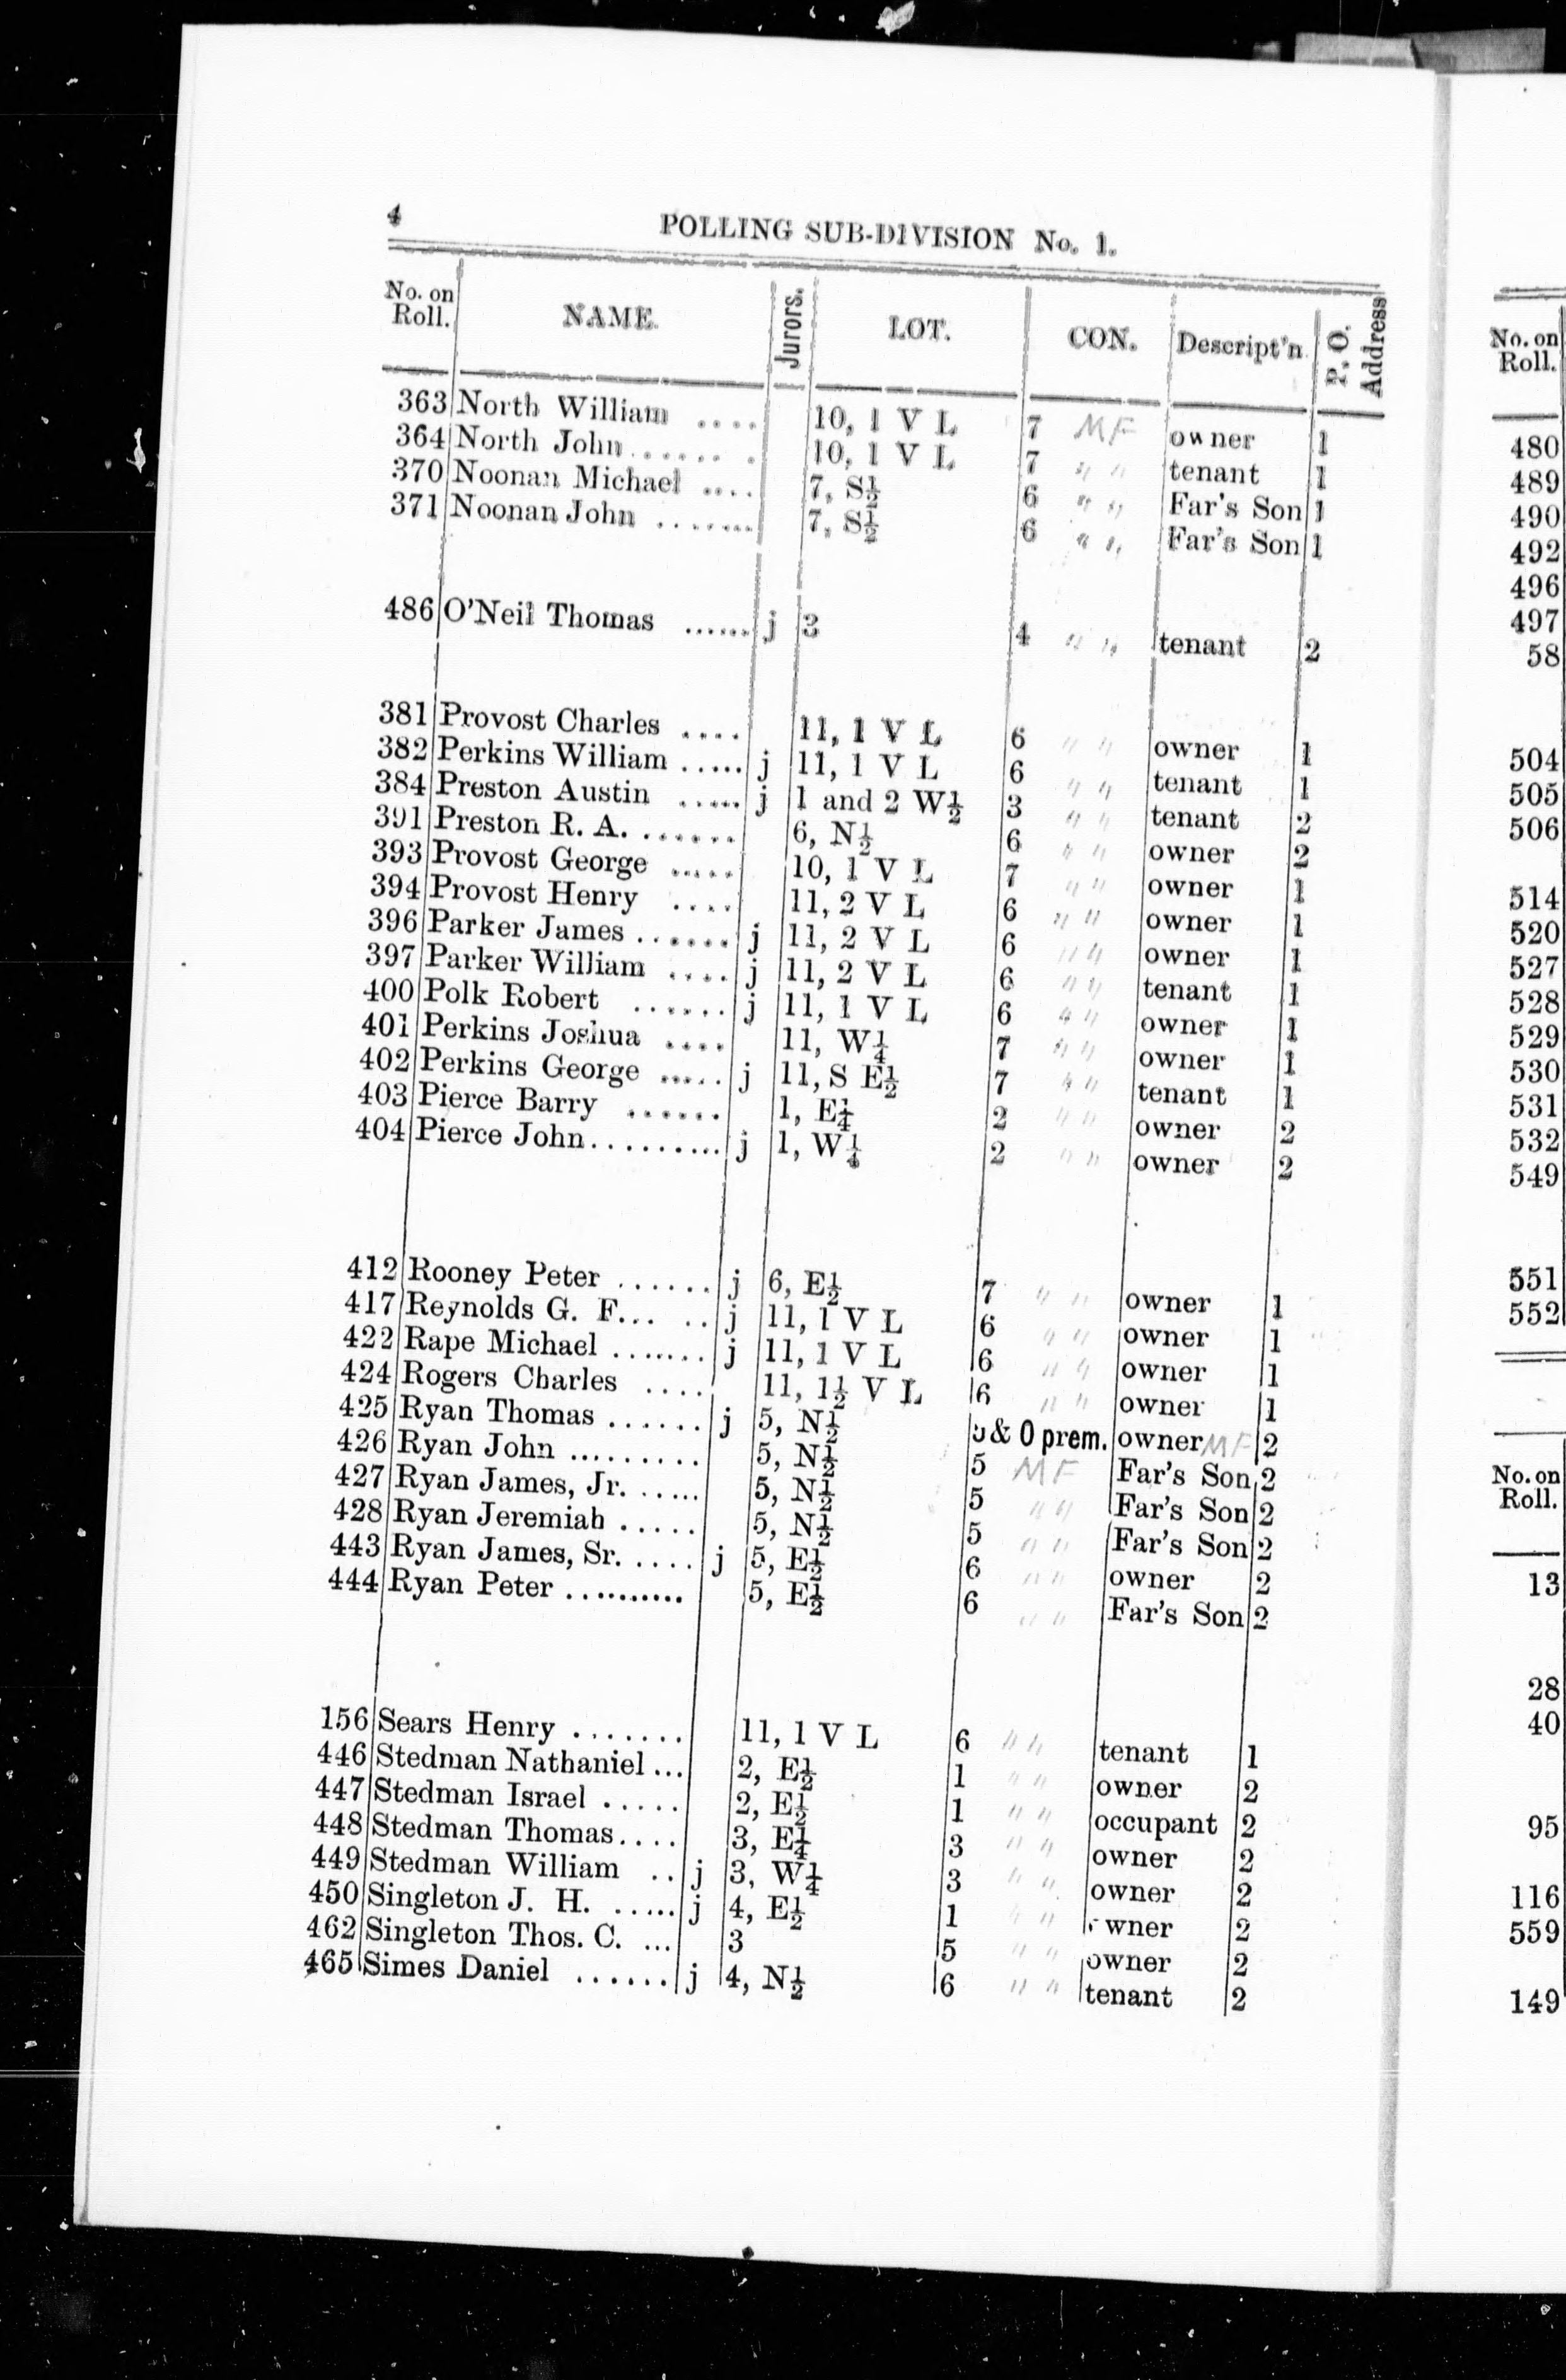 4 POLLING SUB-DIVISION No. 1.
No. on Roll. NAME. Jurors. LOT. CON. Descript'n P. O. Address
363 North William .... 10, 1 V L 7 MF owner 1
364 North John....... . 10, 1 V L 7 " " tenant 1
370 Noonan Michael .... 7, S½ 6 " " Far's Son 1
371 Noonan John ........ 7, S½ 6 " " Far's Son 1
486 O'Neil Thomas ...... j 3 4 " " tenant 2
381 Provost Charles .... 11, 1 V L 6 " " owner 1
382 Perkins William ..... j 11, 1 V L 6 " " tenant 1
384 Preston Austin ..... j 1 and 2 W½ 3 " " tenant 2
391 Preston R. A. ....... 6, N½ 6 " " owner 2
393 Provost George ..... 10, 1 V L 7 " " owner 1
394 Provost Henry .... 11, 2 V L 6 " " owner 1
396 Parker James ....... j 11, 2 V L 6 " " owner 1
397 Parker William .... j 11, 2 V L 6 " " tenant 1
400 Polk Robert ....... j 11, 1 V L 6 " " owner 1
401 Perkins Joshua .... 11, W¼ 7 " " owner 1
402 Perkins George ..... j 11, S E½ 7 " " tenant 1
403 Pierce Barry ...... 1, E¼ 2 " " owner 2
404 Pierce John.......... j 1, W¼ 2 " " owner 2
412 Rooney Peter ...... j 6, E½ 7 " " owner 1
417 Reynolds G. F... .. j 11, 1 V L 6 " " owner 1
422 Rape Michael ....... j 11, 1 V L 6 " " owner 1
424 Rogers Charles .... 11, 1½ V L 6 " " owner 1
425 Ryan Thomas ...... j 5, N½ & O prem. owner MF 2
426 Ryan John ......... 5, N½ 5 MF Far's Son 2
427 Ryan James, Jr. ...... 5, N½ 5 " " Far's Son 2
428 Ryan Jeremiah ..... 5, N½ 5 " " Far's Son 2
443 Ryan James, Sr. .... j 5, E½ 6 " " owner 2
444 Ryan Peter .......... 5, E½ 6 " " Far's Son 2
156 Sears Henry ....... 11, 1 V L 6 " " tenant 1
446 Stedman Nathaniel ... 2, E½ 1 " " owner 2
447 Stedman Israel ..... 2, E½ 1 " " occupant 2
448 Stedman Thomas.... 3, E¼ 3 " " owner 2
449 Stedman William .. j 3, W¼ 3 " " owner 2
450 Singleton J. H. ...... j 4, E½ 1 " " wner 2
462 Singleton Thos. C. ... 3 5 " " owner 2
465 Simes Daniel ...... j 4, N½ 6 " " tenant 2
No. on Roll.
480
489
490
492
496
497
58
504
505
506
514
520
527
528
529
530
531
532
549
551
552
No. on Roll.
13
28
40
95
116
559
149